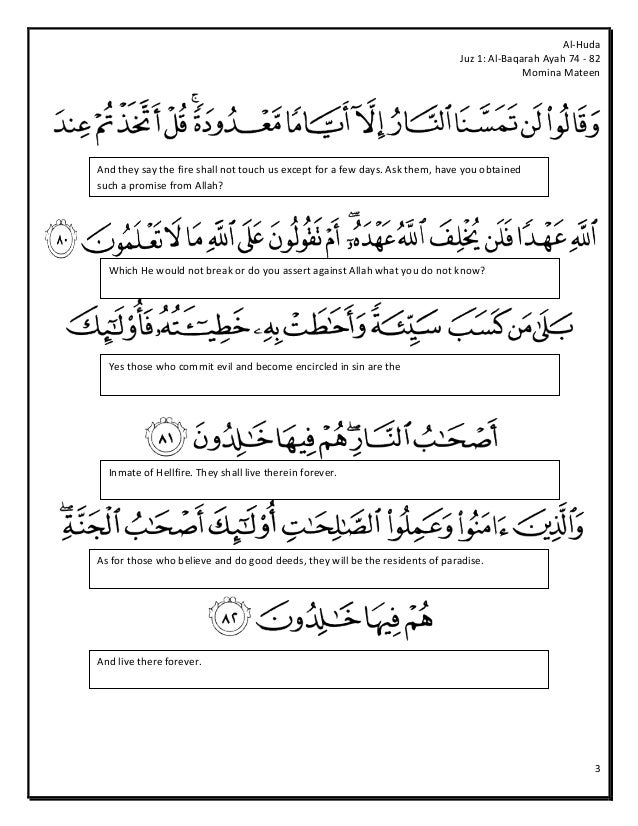 Al-Huda
Juz 1: Al-Baqarah Ayah 74 - 82
Momina Mateen
وَقَالُوا۟ لَن تَمَسَّنَا ٱلنَّارُ إِلَّآ أَيَّامًا مَّعْدُودَةً ۚ قُلْ أَتَّخَذْتُمْ عِندَ
And they say the fire shall not touch us except for a few days. Ask them, have you obtained
such a promise from Allah?
ٱللَّهِ عَهْدًا فَلَن يُخْلِفَ ٱللَّهُ عَهْدَهُۥٓ ۖ أَمْ تَقُولُونَ عَلَى ٱللَّهِ مَا لَا تَعْلَمُونَ ٨٠
Which He would not break or do you assert against Allah what you do not know?
بَلَىٰ مَن كَسَبَ سَيِّئَةً وَأَحَٰطَتْ بِهِۦ خَطِيٓـَٔتُهُۥ فَأُو۟لَٰٓئِكَ
Yes those who commit evil and become encircled in sin are the
أَصْحَٰبُ ٱلنَّارِ ۖ هُمْ فِيهَا خَٰلِدُونَ ٨١
Inmate of Hellfire. They shall live therein forever.
وَٱلَّذِينَ ءَامَنُوا۟ وَعَمِلُوا۟ ٱلصَّٰلِحَٰتِ أُو۟لَٰٓئِكَ أَصْحَٰبُ ٱلْجَنَّةِ ۖ
As for those who believe and do good deeds, they will be the residents of paradise.
هُمْ فِيهَا خَٰلِدُونَ ٨٢
And live there forever.
3